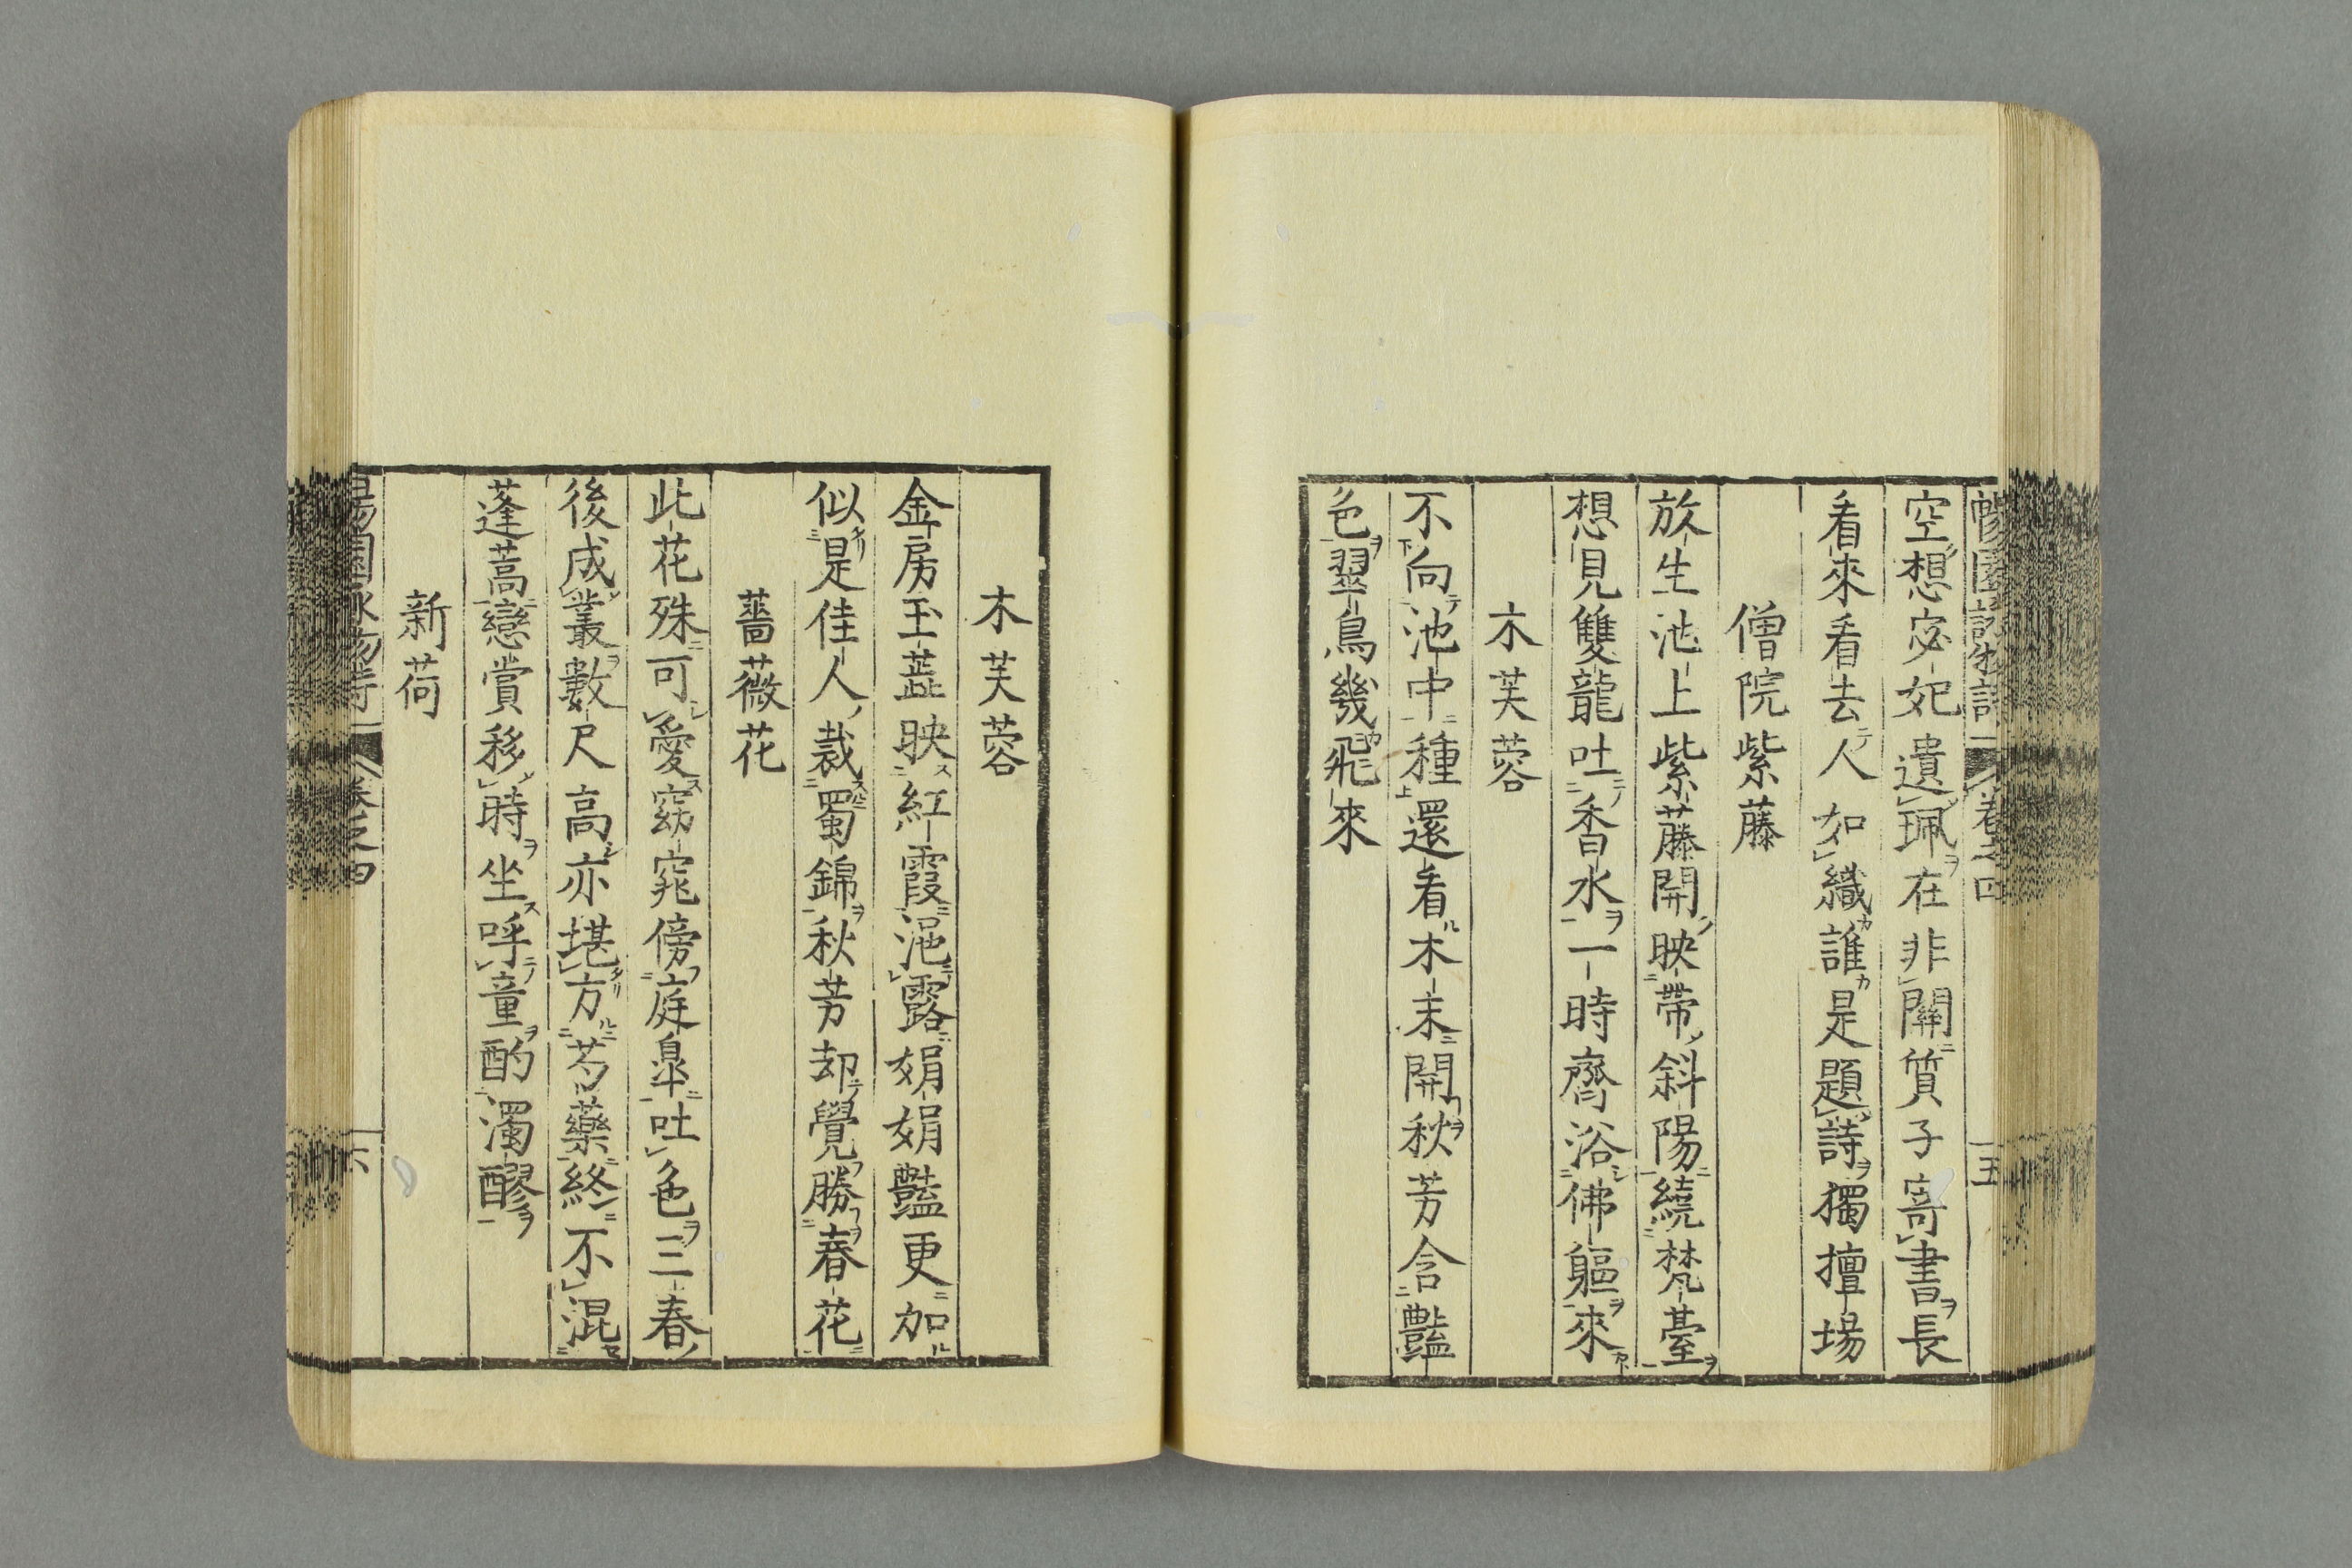 空想宓妃遺珮在非關質子寄書長
看來看去人如織誰是題詩獨擅場
僧院紫藤
放生池上紫藤開映帶斜陽繞梵臺
想見雙龍吐香水一時齊浴佛軀來
木芙蓉
不向池中種還看木末開秋芳含豔
色翠鳥幾飛來
木芙蓉
金房玉蕋映紅霞浥露娟娟豔更加
似是佳人裁蜀錦秋芳却覺勝春花
薔薇花
此花殊可愛窈窕傍庭皐吐色三春
後成叢數尺高亦堪方芍藥終不混
蓬蒿戀賞移時坐呼童酌濁醪
新荷
卷之四
六